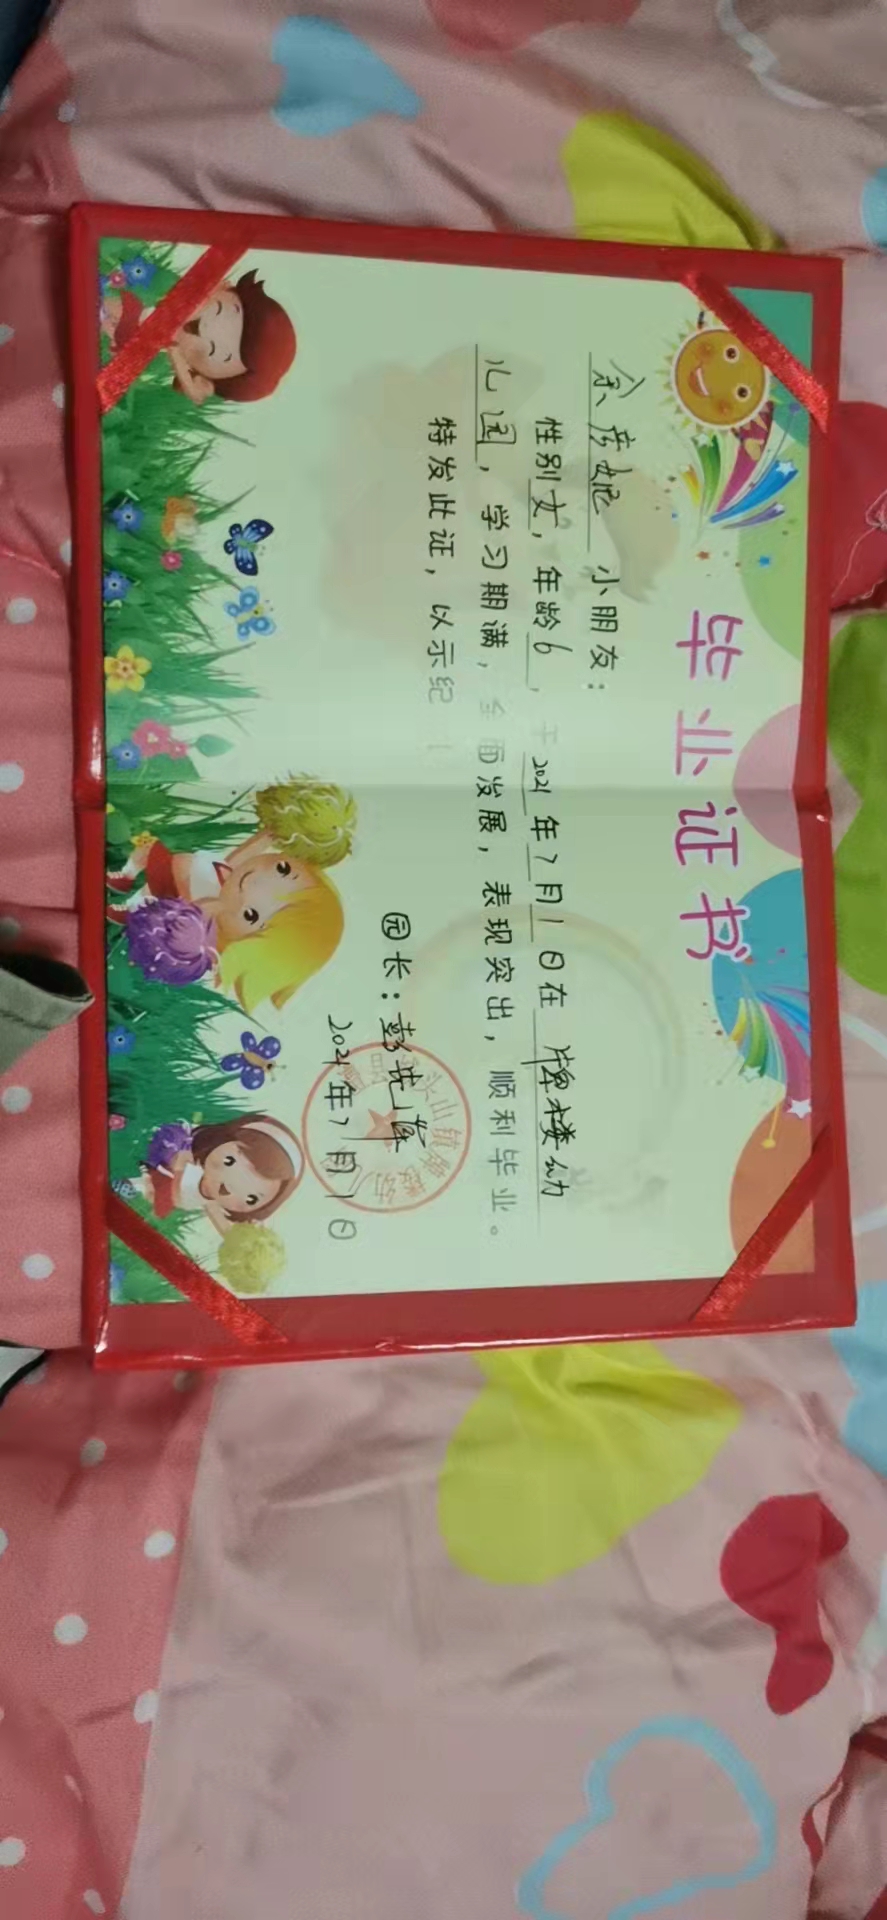 毕业证书
余彦妮 小朋友:
性别女,年龄6,于2021年7月1日在牌楼幼
儿园,学习期满,全面发展,表现突出,顺利毕业。
特发此证,以示纪
园长:彭
2021年7月1日
头山镇牌楼幼